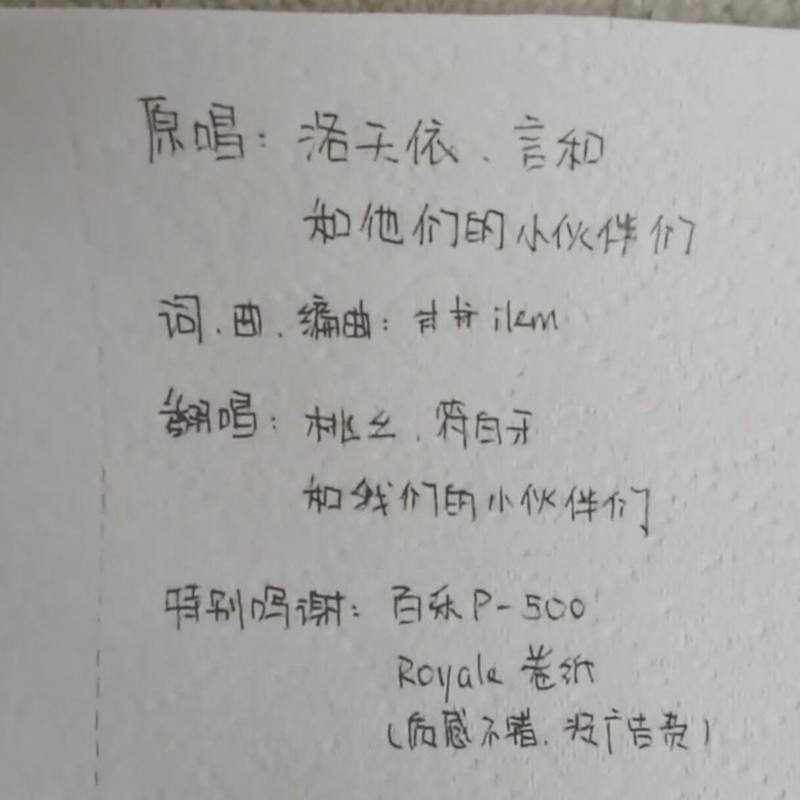 原唱：洛天依、言和
和他们的小伙伴们
词、曲、编曲：井井ilem
翻唱：桃乡、符白牙
和我们的小伙伴们
特别鸣谢：百乐P-500
Royale 卷纸
（质感不错、没广告费）